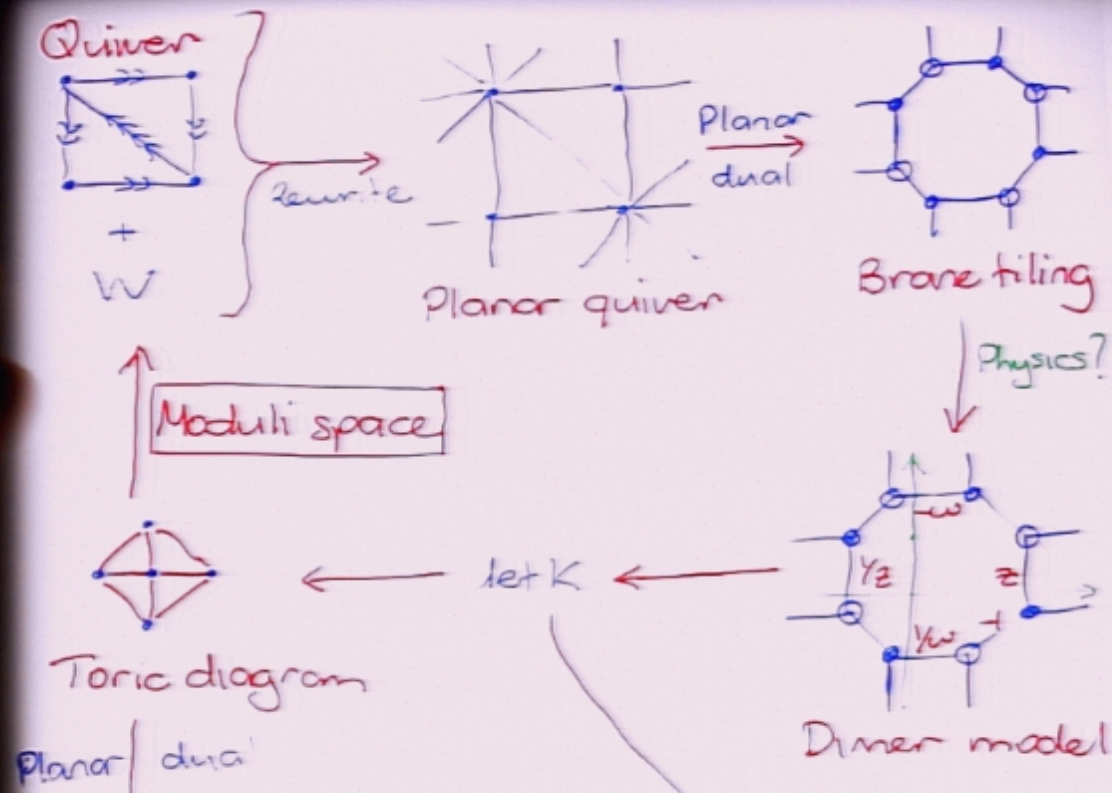 Quiver
+
W
Rewrite
Planar quiver
Planar
dual
Brane tiling
Physics?
Moduli space
Toric diagram
det K
-w
1/z
z
1/w
Dimer model
Planar dual